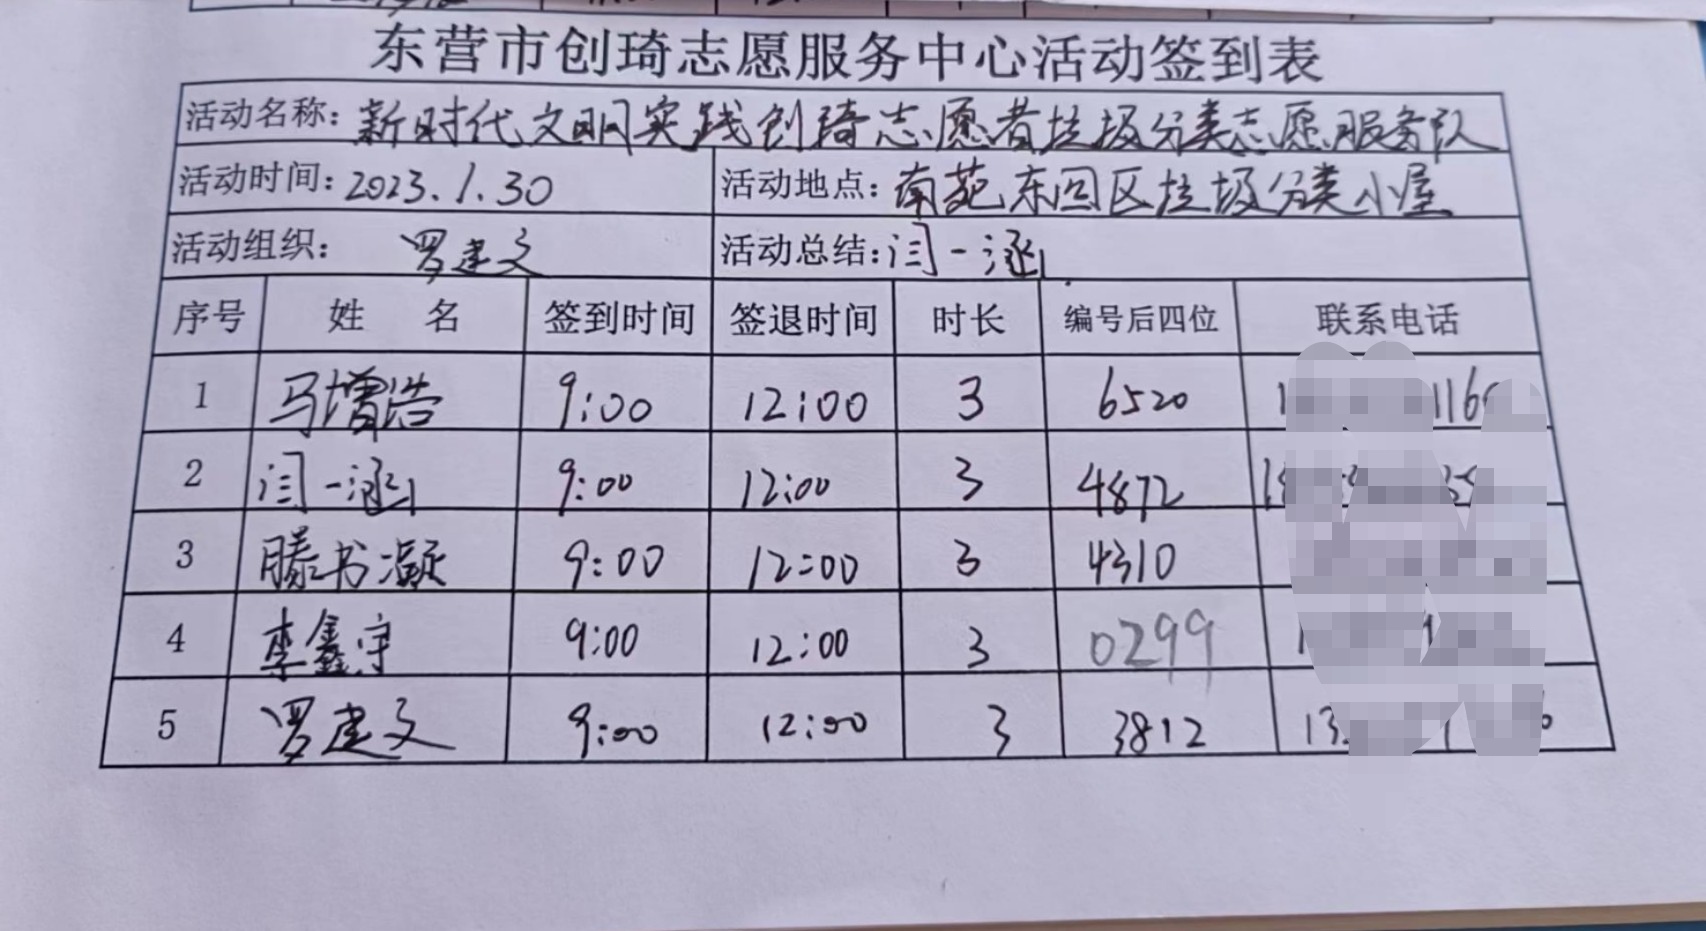 东营市创琦志愿服务中心活动签到表
活动名称: 新时代文明实践创琦志愿者垃圾分类志愿服务队
活动时间: 2023.1.30 活动地点: 南苑东回区垃圾分类小屋
活动组织: 罗建文 活动总结: 闫一涵
序号 姓 名 签到时间 签退时间 时长 编号后四位 联系电话
1 马增浩 9:00 12:00 3 6520
2 闫一涵 9:00 12:00 3 4872
3 滕书凝 9:00 12:00 3 4310
4 李鑫宇 9:00 12:00 3 0299
5 罗建文 9:00 12:00 3 3812